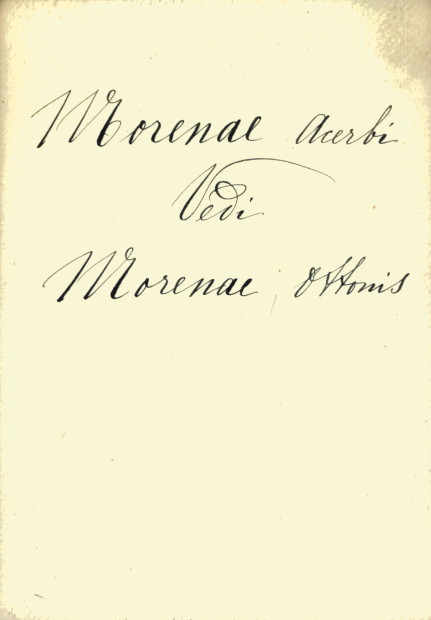 Morenae Acerbi
Vedi
Morenae, Ottonis